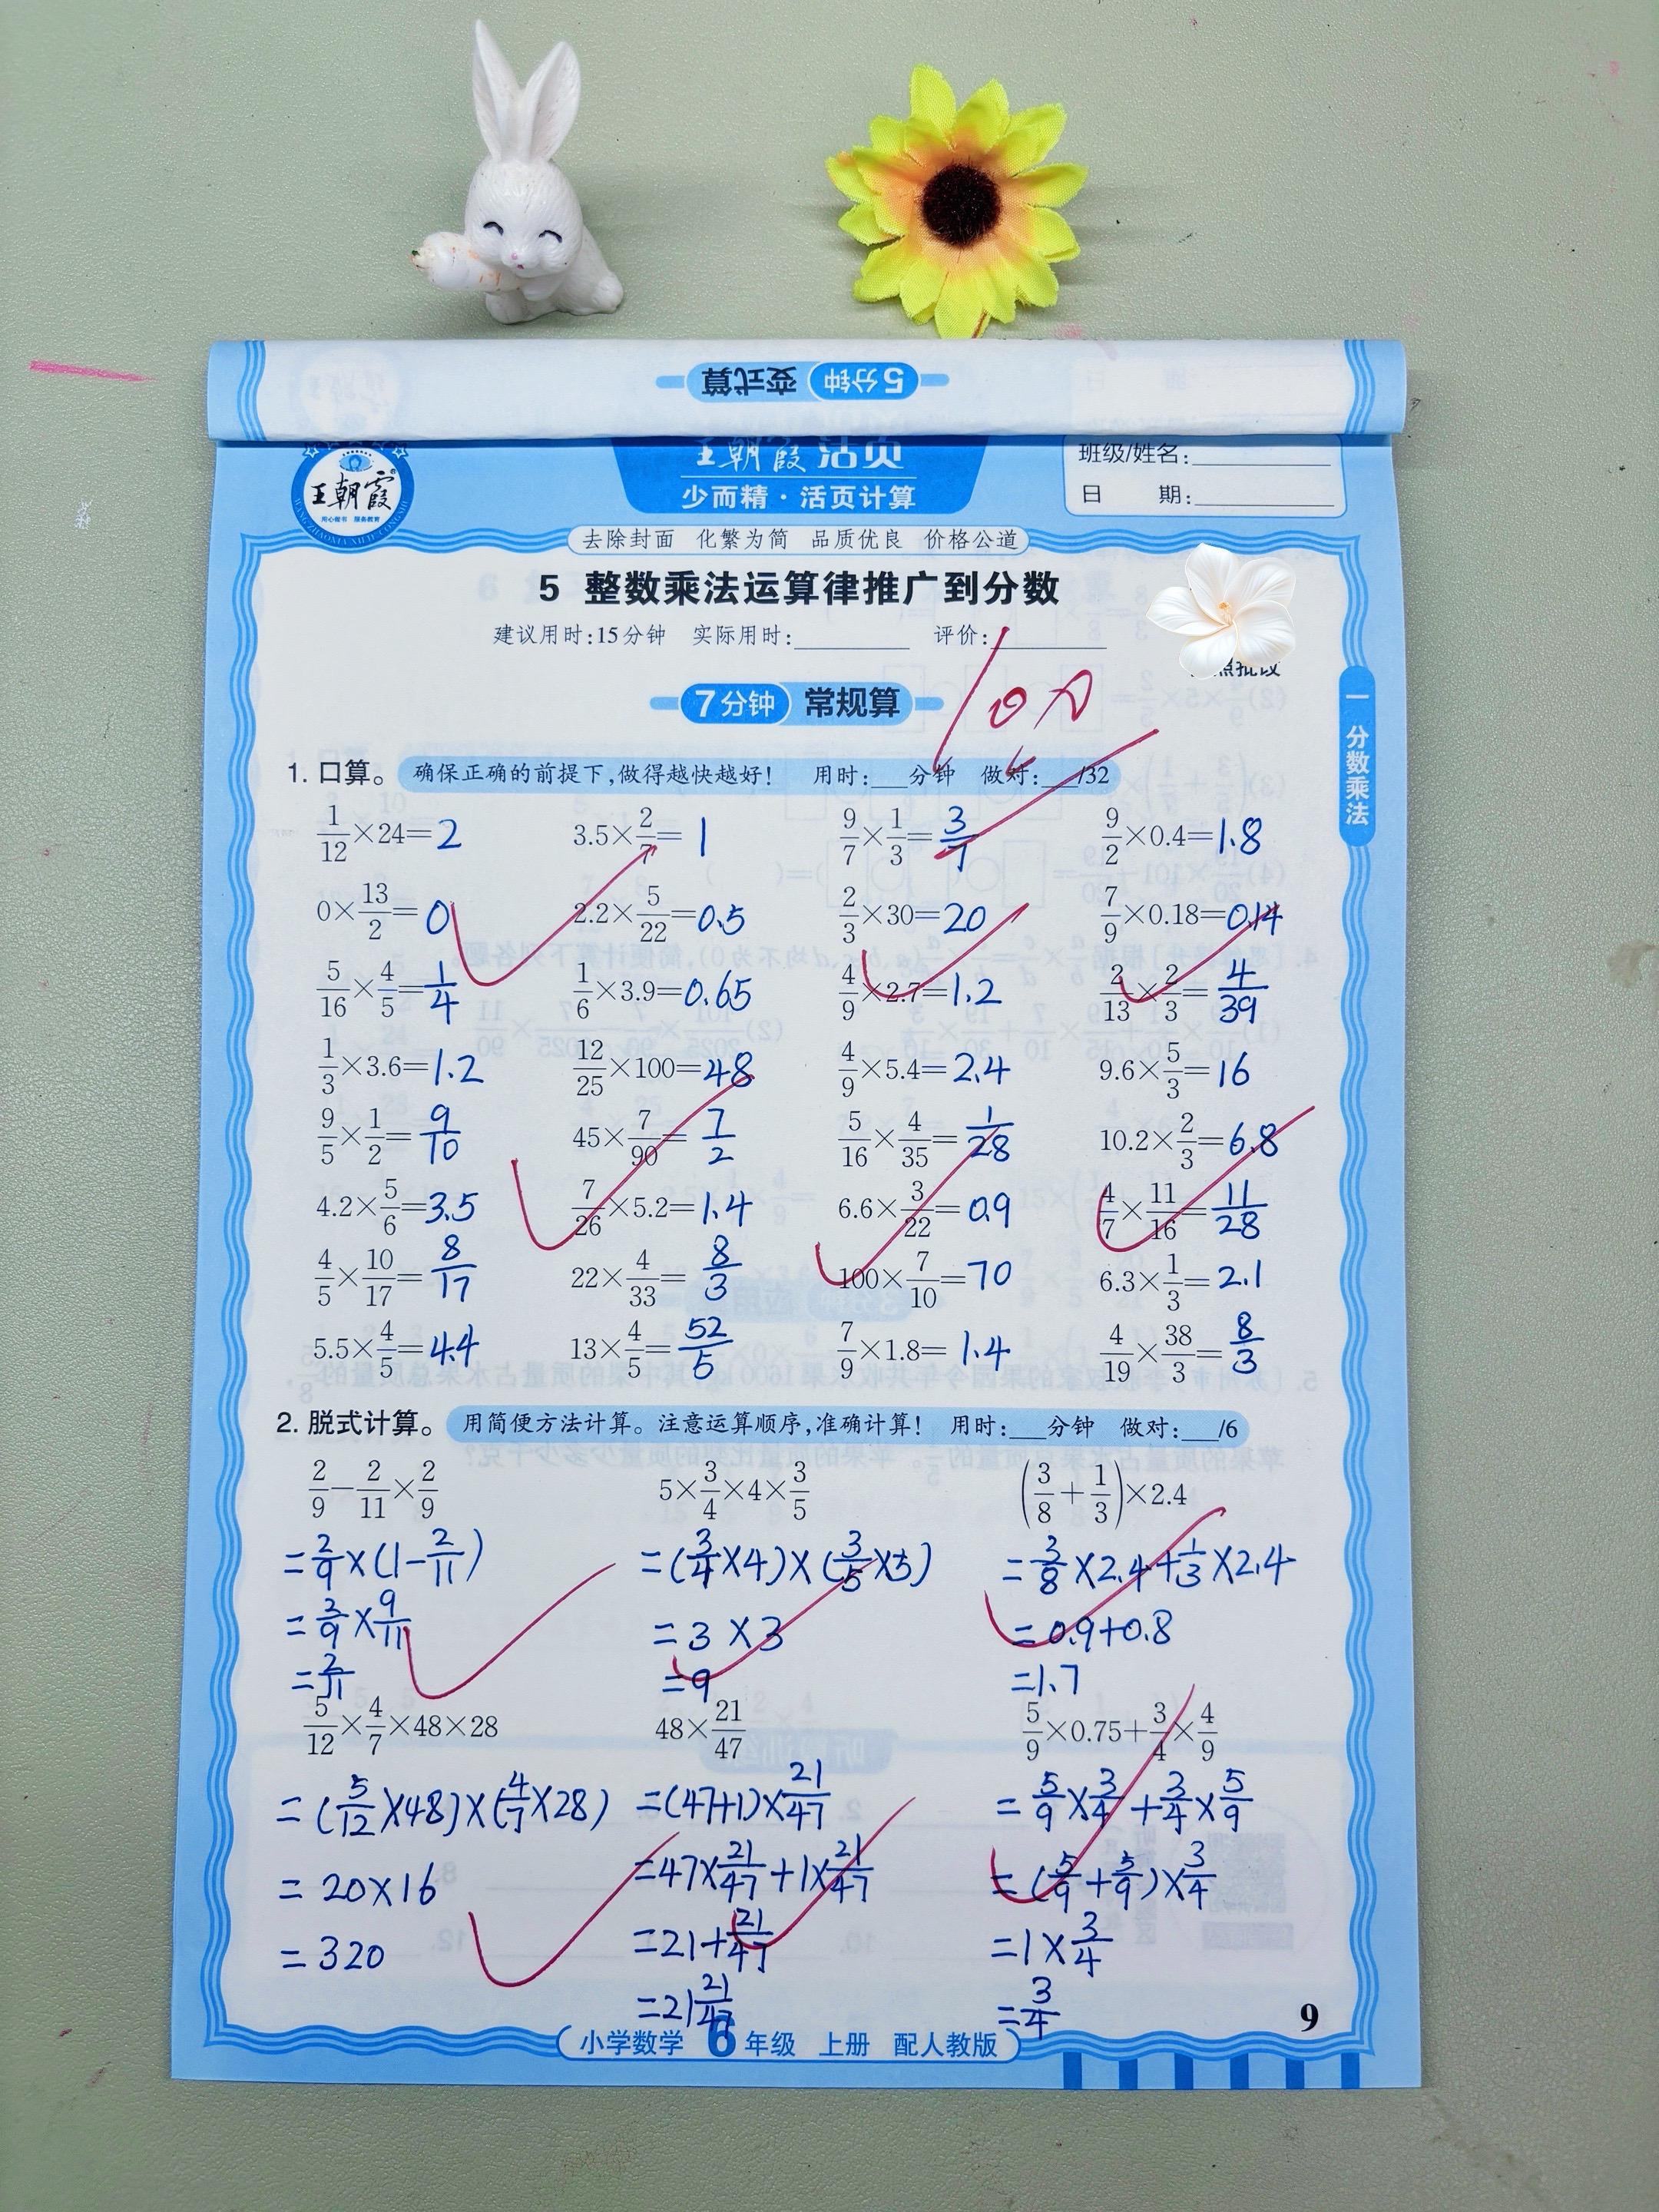 5分钟 变式算
王朝霞
王朝霞 活页
少而精·活页计算
班级/姓名:
日 期:
去除封面 化繁为简 品质优良 价格公道
5 整数乘法运算律推广到分数
建议用时:15分钟 实际用时: 评价:
7分钟 常规算
100分
1. 口算。 确保正确的前提下,做得越快越好! 用时:___分钟 做对:___/32
1/12×24=2 3.5×2/7=1 9/7×1/3=3/7 9/2×0.4=1.8
0×13/2=0 2.2×5/22=0.5 2/3×30=20 7/9×0.18=0.14
5/16×4/5=1/4 1/6×3.9=0.65 4/9×2.7=1.2 2/13×2/3=4/39
1/3×3.6=1.2 12/25×100=48 4/9×5.4=2.4 9.6×5/3=16
9/5×1/2=9/10 45×7/90=7/2 5/16×4/35=1/28 10.2×2/3=6.8
4.2×5/6=3.5 7/26×5.2=1.4 6.6×3/22=0.9 4/7×11/16=11/28
4/5×10/17=8/17 22×4/33=8/3 100×7/10=70 6.3×1/3=2.1
5.5×4/5=4.4 13×4/5=52/5 7/9×1.8=1.4 4/19×38/3=8/3
2. 脱式计算。 用简便方法计算。注意运算顺序,准确计算! 用时:___分钟 做对:___/6
2/9-2/11×2/9 5×3/4×4×3/5 (3/8+1/3)×2.4
=2/9×(1-2/11) =(3/4×4)×(3/5×5) =3/8×2.4+1/3×2.4
=2/9×9/11 =3×3 =0.9+0.8
=2/11 =9 =1.7
5/12×4/7×48×28 48×21/47 5/9×0.75+3/4×4/9
=(5/12×48)×(4/7×28) =(47+1)×21/47 =5/9×3/4+3/4×5/9
=20×16 =47×21/47+1×21/47 =(5/9+5/9)×3/4
=320 =21+21/47 =1×3/4
=21 21/47 =3/4
9
小学数学 6年级 上册 配人教版
一 分数乘法